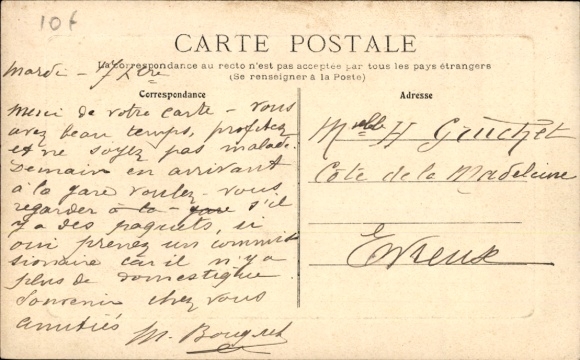 10f
CARTE POSTALE
La correspondance au recto n'est pas acceptée par tous les pays étrangers
(Se renseigner à la Poste)
Correspondance
Adresse
Mardi - 7bre
Merci de votre carte - vous
avez beau temps, profitez
et ne soyez pas malade.
Demain en arrivant
à la gare voulez-vous
regarder à la gare s'il
y a des paquets, si
oui prenez un commis
sionnaire car il n'y a
plus de domestique.
Souvenir chez vous
amitiés
M.
Melle H Guichet
Côte de la Madeleine
Evreux